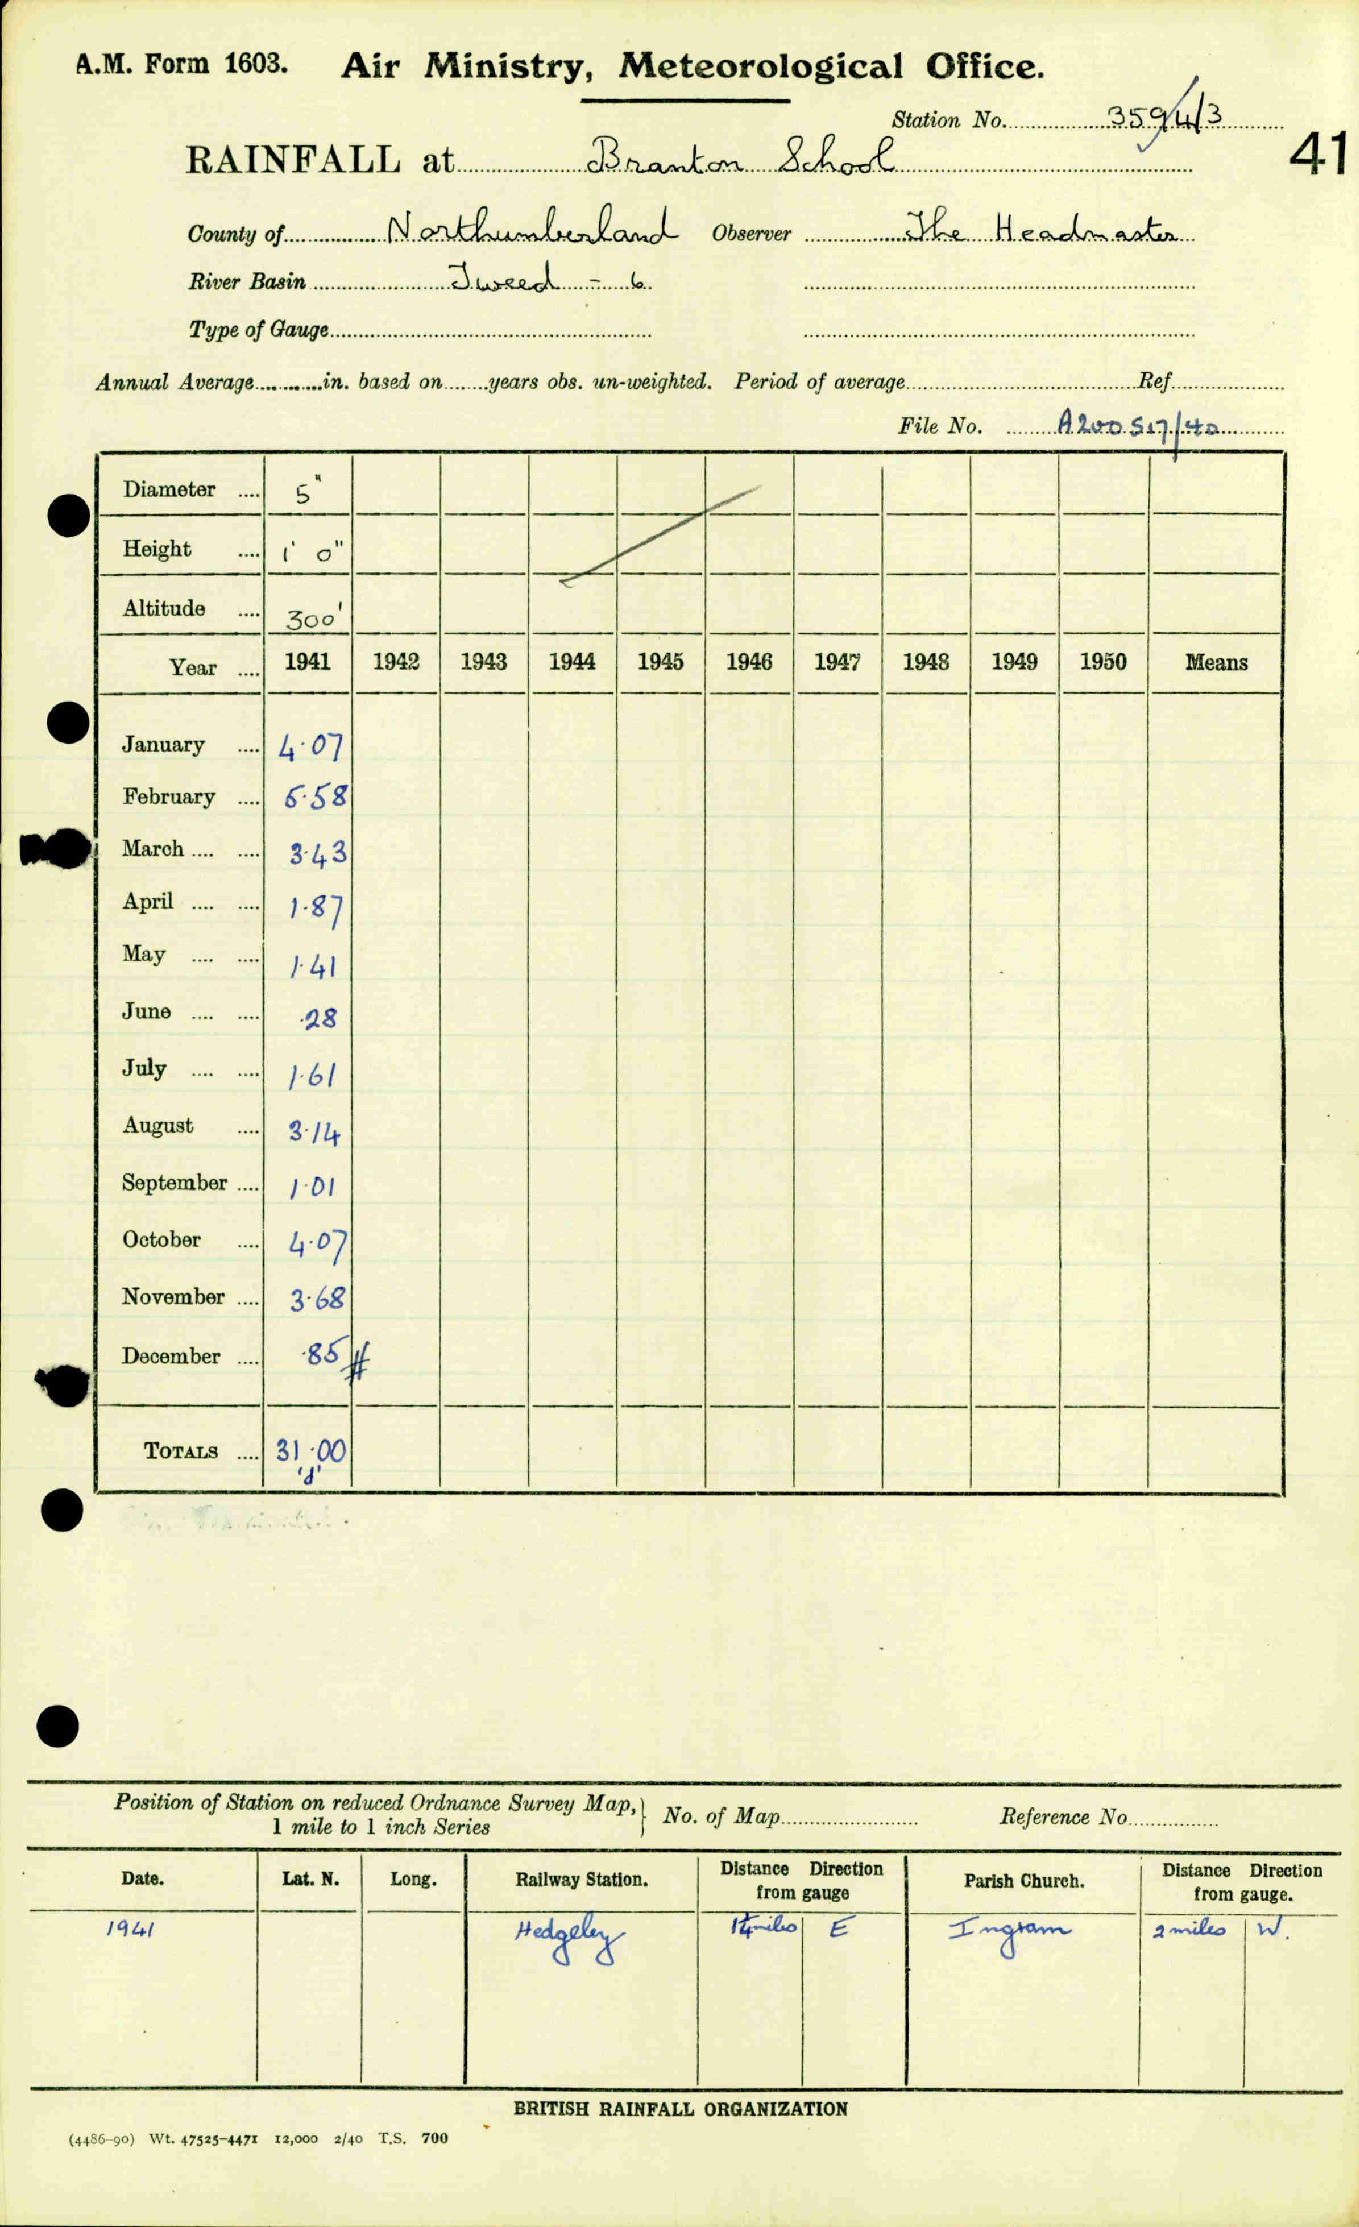 A.M. Form 1603. Air Ministry, Meteorological Office.
Station No. 3594/3
41
RAINFALL at Branton School
County of Northumberland Observer The Headmaster
River Basin Tweed - 6
Type of Gauge
Annual Average in. based on years obs. un-weighted. Period of average Ref
File No. A200517/40
Diameter 5"
Height 1' 0"
Altitude 300'
Year 1941 1942 1943 1944 1945 1946 1947 1948 1949 1950 Means
January 4.07
February 5.58
March 3.43
April 1.87
May 1.41
June .28
July 1.61
August 3.14
September 1.01
October 4.07
November 3.68
December .85 #
TOTALS 31.00
'd'
Position of Station on reduced Ordnance Survey Map, } No. of Map Reference No.
1 mile to 1 inch Series
Date. Lat. N. Long. Railway Station. Distance Direction from gauge Parish Church. Distance Direction from gauge.
1941 Hedgeley 1¼ miles E Ingram 2 miles W.
BRITISH RAINFALL ORGANIZATION
(4486-90) Wt. 47525-4471 12,000 2/40 T.S. 700